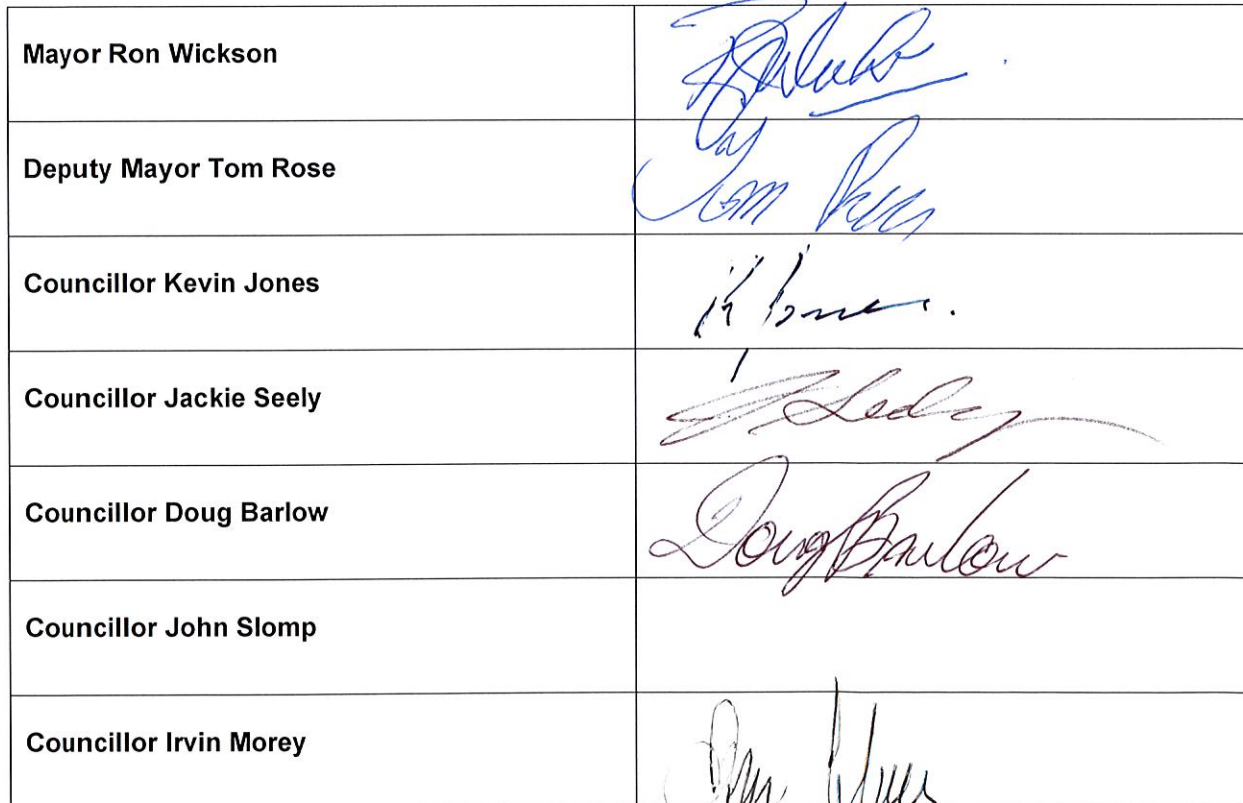 Mayor Ron Wickson
Deputy Mayor Tom Rose
Tom
Councillor Kevin Jones
K Jones.
Councillor Jackie Seely
J Seely
Councillor Doug Barlow
Doug Barlow
Councillor John Slomp
Councillor Irvin Morey